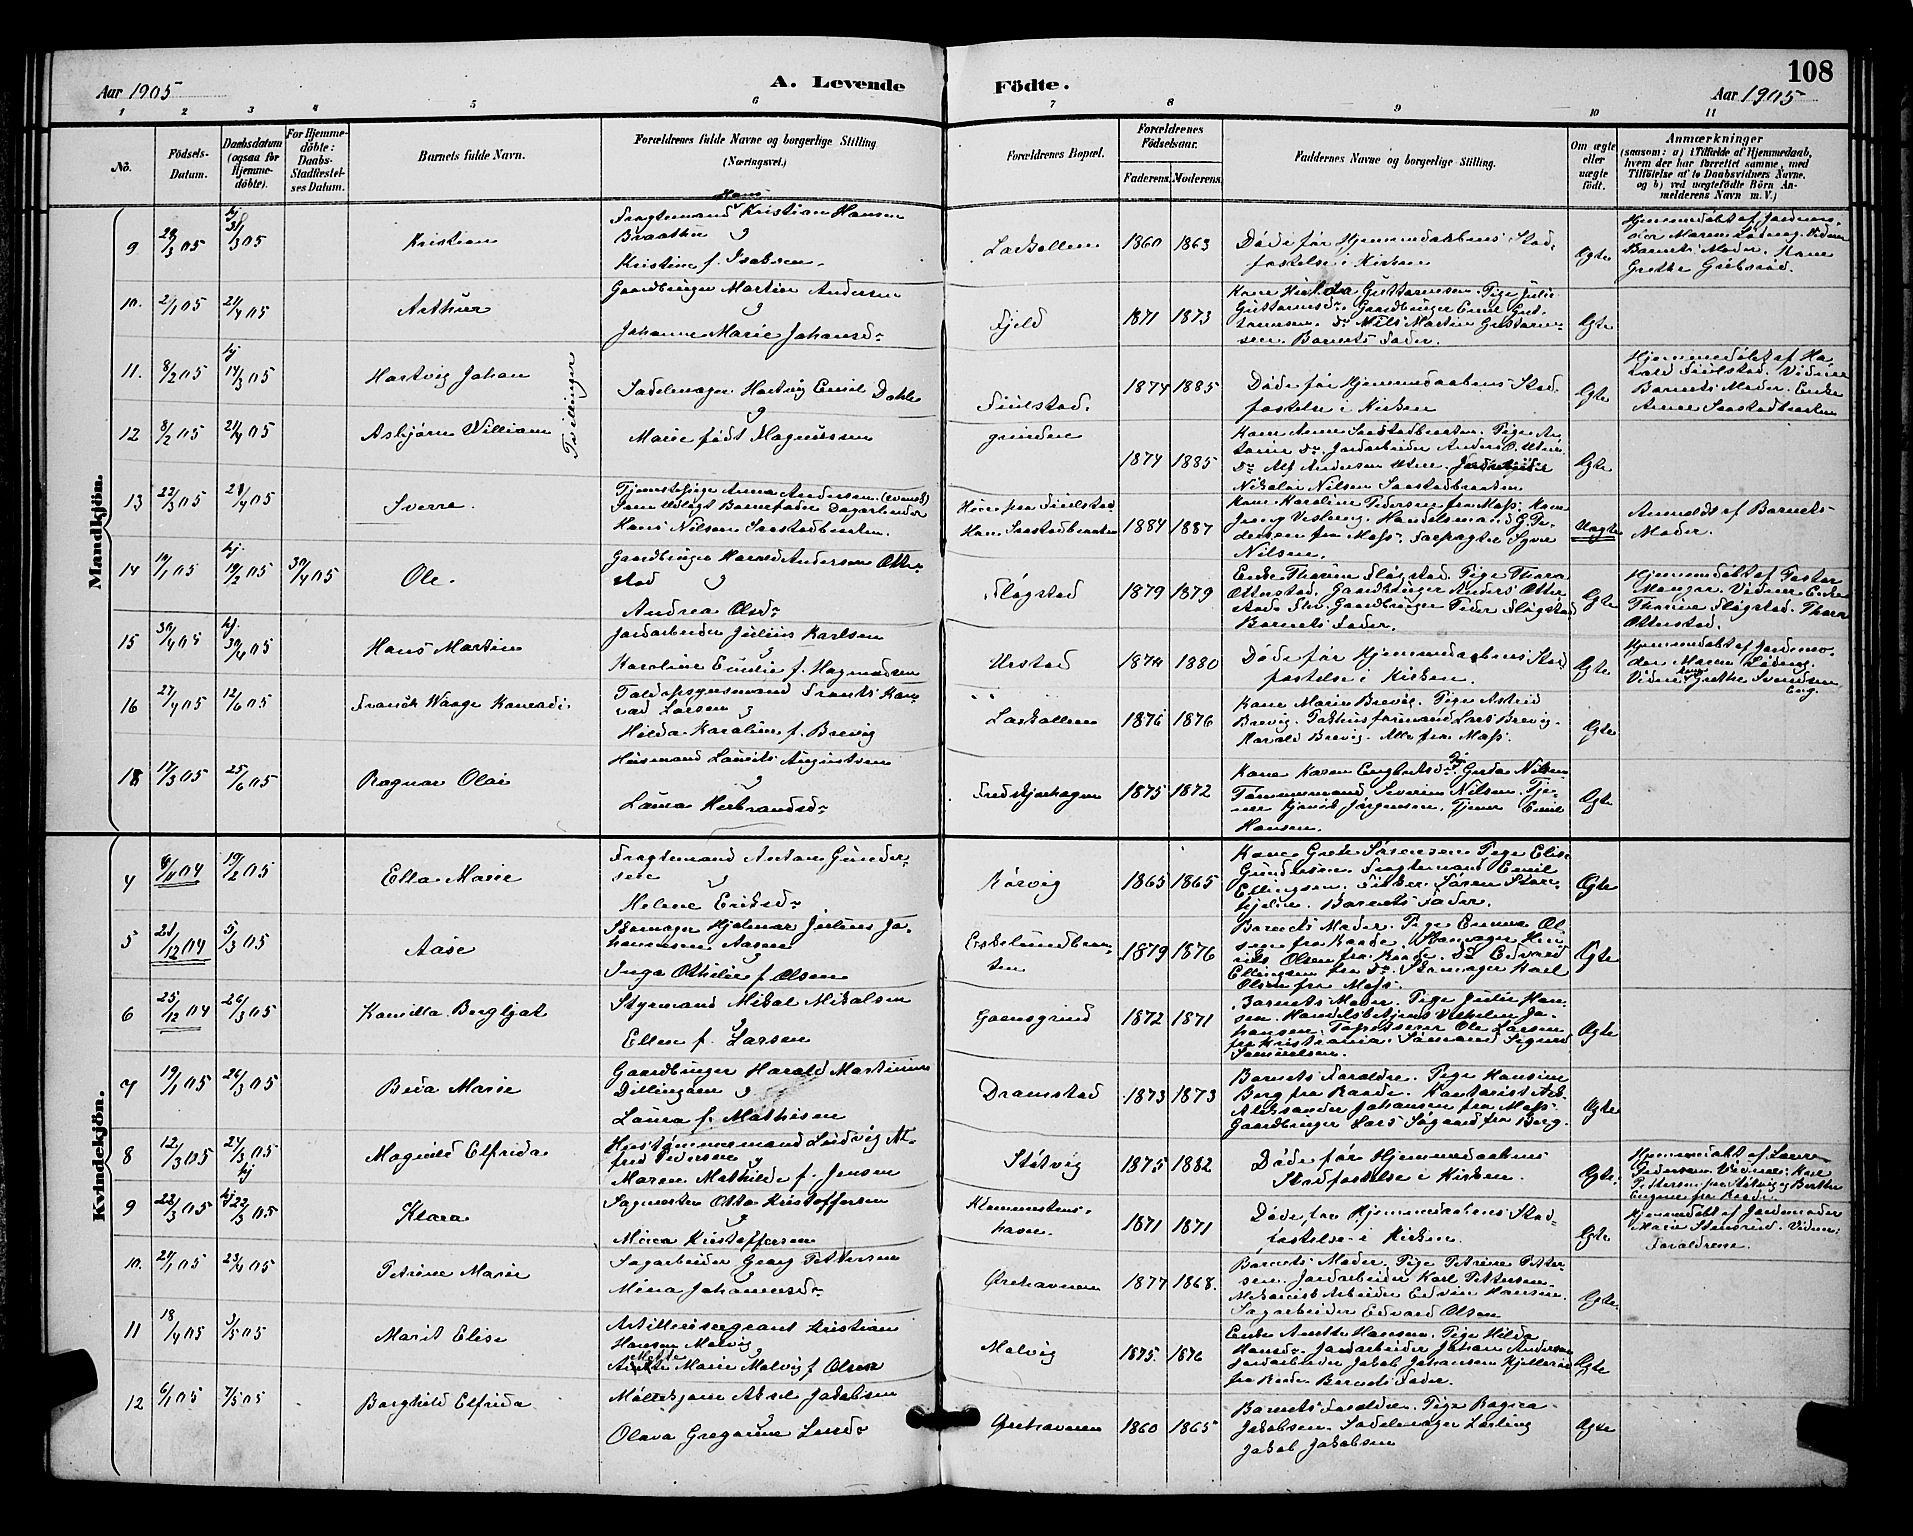 108
Aar 1905
A. Levende Födte.
Aar 1905
1 2 3 4 5 6 7 8 9 10 11
No.
Födsels-Datum.
Daabsdatum (ogsaa for Hjemmedöbte).
For Hjemmedöbte: Daabs-Stadfæstelses Datum.
Barnets fulde Navn.
Forældrenes fulde Navne og borgerlige Stilling (Næringsvei.)
Forældrenes Bopæl.
Forældrenes Födselsaar.
Faderens. Moderens.
Faddernes Navne og borgerlige Stilling.
Om ægte eller uægte født.
Anmærkninger
(saasom: a) i Tilfælde af Hjemmedaab, hvem der har forrettet samme, med Tilföielse af to Daabsvidners Navne, og b) ved uægtefödte Börn Anmelderens Navn m. V.)
Mandkjön.
9 28/3 05 hj 31/3 05 Kristian
Fragtemand Hans Kristian Hansen
Braathen og
Kristine f. Isaksen.
Larkollen 1860 1863
Døde før Hjemmedaabens Stad-
fæstelse i Kirken
Ægte
Hjemmedøbt af Jordmo-
der Maren Løding. Vidner
Barnets Moder. Kone
Grethe
10. 2/1 05 24/4 05 Arthur
Gaardbruger Martin Andersen
og
Johanne Marie Johansdr
Fjeld 1871 1873
Kone Hulda Gustavsen. Pige Julie
Gustavsdr. Gaardbruger Emil Gus-
tavsen. Do Nils Martin Gustavs-
sen. Barnets Fader.
Ægte
11. 8/2 05 hj 14/3 05 Hartvig Johan
Tvillinger
Sadelmager Hartvig Emil Dahle
og
Marie født Magnussen
1874 1885
Døde før Hjemmedaabens Stad-
fæstelse i Kirken
Ægte
Hjemmedøbt af Ha-
rald Fuilstad. Vidner
Barnets Moder. Enke
Anne Saastadbraaten
12 8/2 05 24/4 05 Asbjørn William
Fuilstad.
grinden
1874 1885
Kone Anne Saastadbraaten. Pige
Do. Jordarbeider Anders O.
Do Alf Andersen
Nikolai Nilsen Saastadbraaten
Ægte
13 22/3 05 24/4 05 Sverre.
Tjenestepige Anna Andersen. (svensk)
Som Udlagt Barnefader Dagarbeider
Hans Nilsen Saastadbraaten.
Hun fra Fuilstad
Han. Saastadbraaten
1884 1887
Kone Karoline Pedersen fra Moss. Kone
Jenny Vesleng. Handelsmand G. Pe-
dersen fra Moss. Forpagter Syver
Nilsen.
Uægte
Anmeldt af Barnets
Moder.
14 19/1 05 hj. 19/2 05 30/4 05 Ole.
Gaardbruger Harald Andersen Otter-
stad og
Andrea Olsdr
Fløgstad 1879 1879
Enke Thorine Fløgstad. Pige Thora
Otterstad. Gaardbruger Anders Otter-
stad. Gaardbruger Peder Fløgstad
Barnets Fader.
Ægte
Hjemmedøbt af Pastor
Mangor. Vidner Enke
Thorine Fløgstad. Thora
Otterstad.
15 30/4 05 hj. 30/4 05 Hans Martin
Jordarbeider Julius Karlsen
og
Karoline Emilie f. Magnudsen
Urstad 1874 1880
Døde før Hjemmedaabens Stad
fæstelse i Kirken.
Ægte
Hjemmedøbt af Jordmo-
der Maren Løding.
Vidner Grethe Svendsen
Eng.
16 27/4 05 12/6 05 Franck Waage Konradi.
Toldopsynsmand Frants Kon-
rad Larsen og
Hilda Karoline f. Brevig
Larkollen 1876 1876
Kone Marie Brevig. Pige Astrid
Brevig. Lars Brevig.
Harald Brevig. Alle fra Moss.
Ægte
18 17/3 05 25/6 05 Ragnar Olai
Husmand Laurits Augustsen
og
Laura Herbrandsdr
Fredskjærhagen 1875 1872
Kone Karen Engbretsdr. Pige Gerda Nilsen
Tømmermand Severin Nilsen. Tje-
ner Jørgensen. Tjener Emil
Hansen.
Ægte
Kvindekjön.
4 6/11 04 19/2 05 Ella Marie
Fragtemand Anton Gunder-
sen og
Helene Eriksdr
Kørvig 1865 1865
Kone Grete Sørensen Pige Elise
Gundersen. Fragtemand Emil
Ellingsen. Fisker Søren Stor-
kjolen. Barnets Fader.
Ægte
5 21/12 04 5/3 05 Aase
Skomager Hjalmar Julius Jo-
hannesen Aasen
og
Inga Othilie f. Olsen
Eskelundbraa-
ten
1879 1876
Barnets Moder. Pige Emma Ol-
sen fra Raade. Skomager Hen-
riks Olsen fra Raade. Do Edvard
Ellingsen fra Do. Skomager Karl
Olsen fra Moss.
Ægte
6 25/12 04 26/3 05 Kamilla Bergljot
Styrmand Mikal Mikalsen
og
Ellen f. Larsen
Goensgrind 1872 1871
Barnets Moder. Pige Julie Han-
sen. Handelsbetjent Vilhelm Jo-
hansen. Tapetserer Ole Larsen
fra Kristiania. Sømand Sigurd
Samuelsen.
Ægte
7 19/1 05 26/3 05 Berta Marie
Gaardbruger Harald Martinius
Dillingøen og
Laura f. Mathisen
Dramstad 1873 1873
Barnets Forældre. Pige Hansine
Berg fra Raade. Kontorist
Aleksander Johansen fra Moss.
Gaardbruger Lars Søgaard fra Berg.
Ægte
8 12/3 05 24/3 05 hj Magnild Elfrida
Hustømmermand Ludvig Al-
fred Pedersen og
Maren Mathilde f. Jensen
Støtvig 1875 1882
Døde før Hjemmedaabens
Stadfæstelse i Kirken.
Ægte.
Hjemmedøbt af Laura
Pedersen. Vidner: Karl
Pettersen fra Støtvig og Berthe
fra Raade.
9 22/3 05 hj 22/3 05 Klara
Sagmester Otto Kristoffersen
og
Mina Kristoffersen
Klommestens-
havn.
1871 1871
Døde før Hjemmedaabens Stad-
fæstelse i Kirken.
Ægte
Hjemmedøbt af Jordmoder
Marie Stensrud. Vidner:
Forældrene.
10. 24/1 05 23/4 05 Petrine Marie
Sagarbeider Georg Pettersen
og
Mina Johannesdr
Ørehavnen 1877 1868.
Barnets Moder. Pige Petrine Petter-
sen. Jordarbeider Karl Pettersen.
Mekanisk Arbeider Edvin Hansen.
Sagarbeider Edvard Olsen
Ægte
11 18/4 05 /5 05 Marit Elise
Artillerisergeant Kristian
Hansen Malvig
og
Anette Marie Malvig f. Olsen
Malvig 1875. 1876
Enke Anette Hansen. Pige Hilda
Hansdr. Jordarbeider Johan Andersen
Jordarbeider Jakob Johansen Kjellerød
fra Raade. Barnets Fader.
Ægte
12 6/1 05 7/5 05 Borghild Elfrida
Møllekjører Aksel Jakobsen
og
Olava Gregorine Larsdr
Ørehavnen 1860 1865
Barnets Forældre. Pige Ragna
Jakobsen. Sadelmager Lærling
Jakob Jakobsen
Ægte